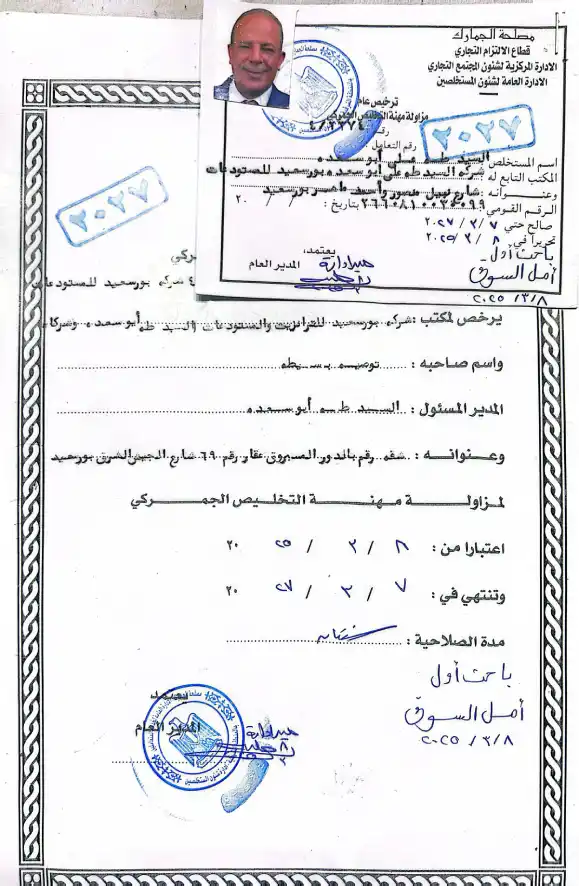 مصلحة الجمارك
قطاع الالتزام التجاري
الادارة المركزية لشئون المجتمع التجاري
الادارة العامة لشئون المستخلصين
ترخيص عام
مزاولة مهنة التخليص الجمركي
رقم
رقم التعامل
٢٠٢٧
اسم المستخلص : السيد طه على أبو سعده
المكتب التابع له : شركه السيد طه على أبو سعده بورسعيد للمستودعات
وعنوانه : شارع نبيل منصور وأحمد ماهر بورسعيد
الرقم القومي : بتاريخ : / / ٢٠
صالح حتى ٧ / ٣ / ٢٠٢٧
تحريرا في ٨ / ٣ / ٢٠٢٥
يعتمد،
المدير العام
باحث أول
أمل السوق
٢٠٢٥ / ٣ / ٨
٢٠٢٧
شركه بورسعيد للمستودعات
يرخص لمكتب : شركه بورسعيد للترانزيت والمستودعات السيد طه أبو سعده وشركاه
واسم صاحبه : توصيه بسيطه
المدير المسئول : السيد طه أبو سعده
وعنوانه : شقه رقم بالدور المسروق عقار رقم ٦٩ شارع الجيش الشرق بورسعيد
لمزاولة مهنة التخليص الجمركي
اعتبارا من : ٨ / ٣ / ٢٥ ٢٠
وتنتهي في : ٧ / ٣ / ٢٧ ٢٠
مدة الصلاحية : سنتان
باحث أول
أمل السوق
٢٠٢٥ / ٣ / ٨
يعتمد
المدير العام